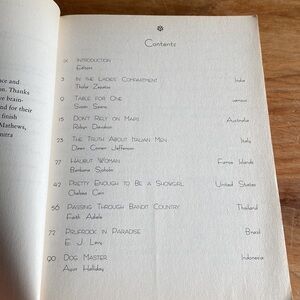 ce and
on. Thanks
ve brain-
nd for their
finish
Mathews,
mitra
Contents
ix INTRODUCTION
Editors
3 IN THE LADIES' COMPARTMENT India
Thalia Zepatos
9 TABLE FOR ONE various
Susan Spano
15 DON'T RELY ON MAPS Australia
Robyn Davidson
23 THE TRUTH ABOUT ITALIAN MEN Italy
Dawn Comer Jefferson
HALIBUT WOMAN Faroe Islands
Barbara Sjoholm
42 PRETTY ENOUGH TO BE A SHOWGIRL United States
Chelsea Cain
56 PASSING THROUGH BANDIT COUNTRY Thailand
Faith Adiele
72 PRUFROCK IN PARADISE Brazil
E. J. Levy
90 DOG MASTER Indonesia
Holliday